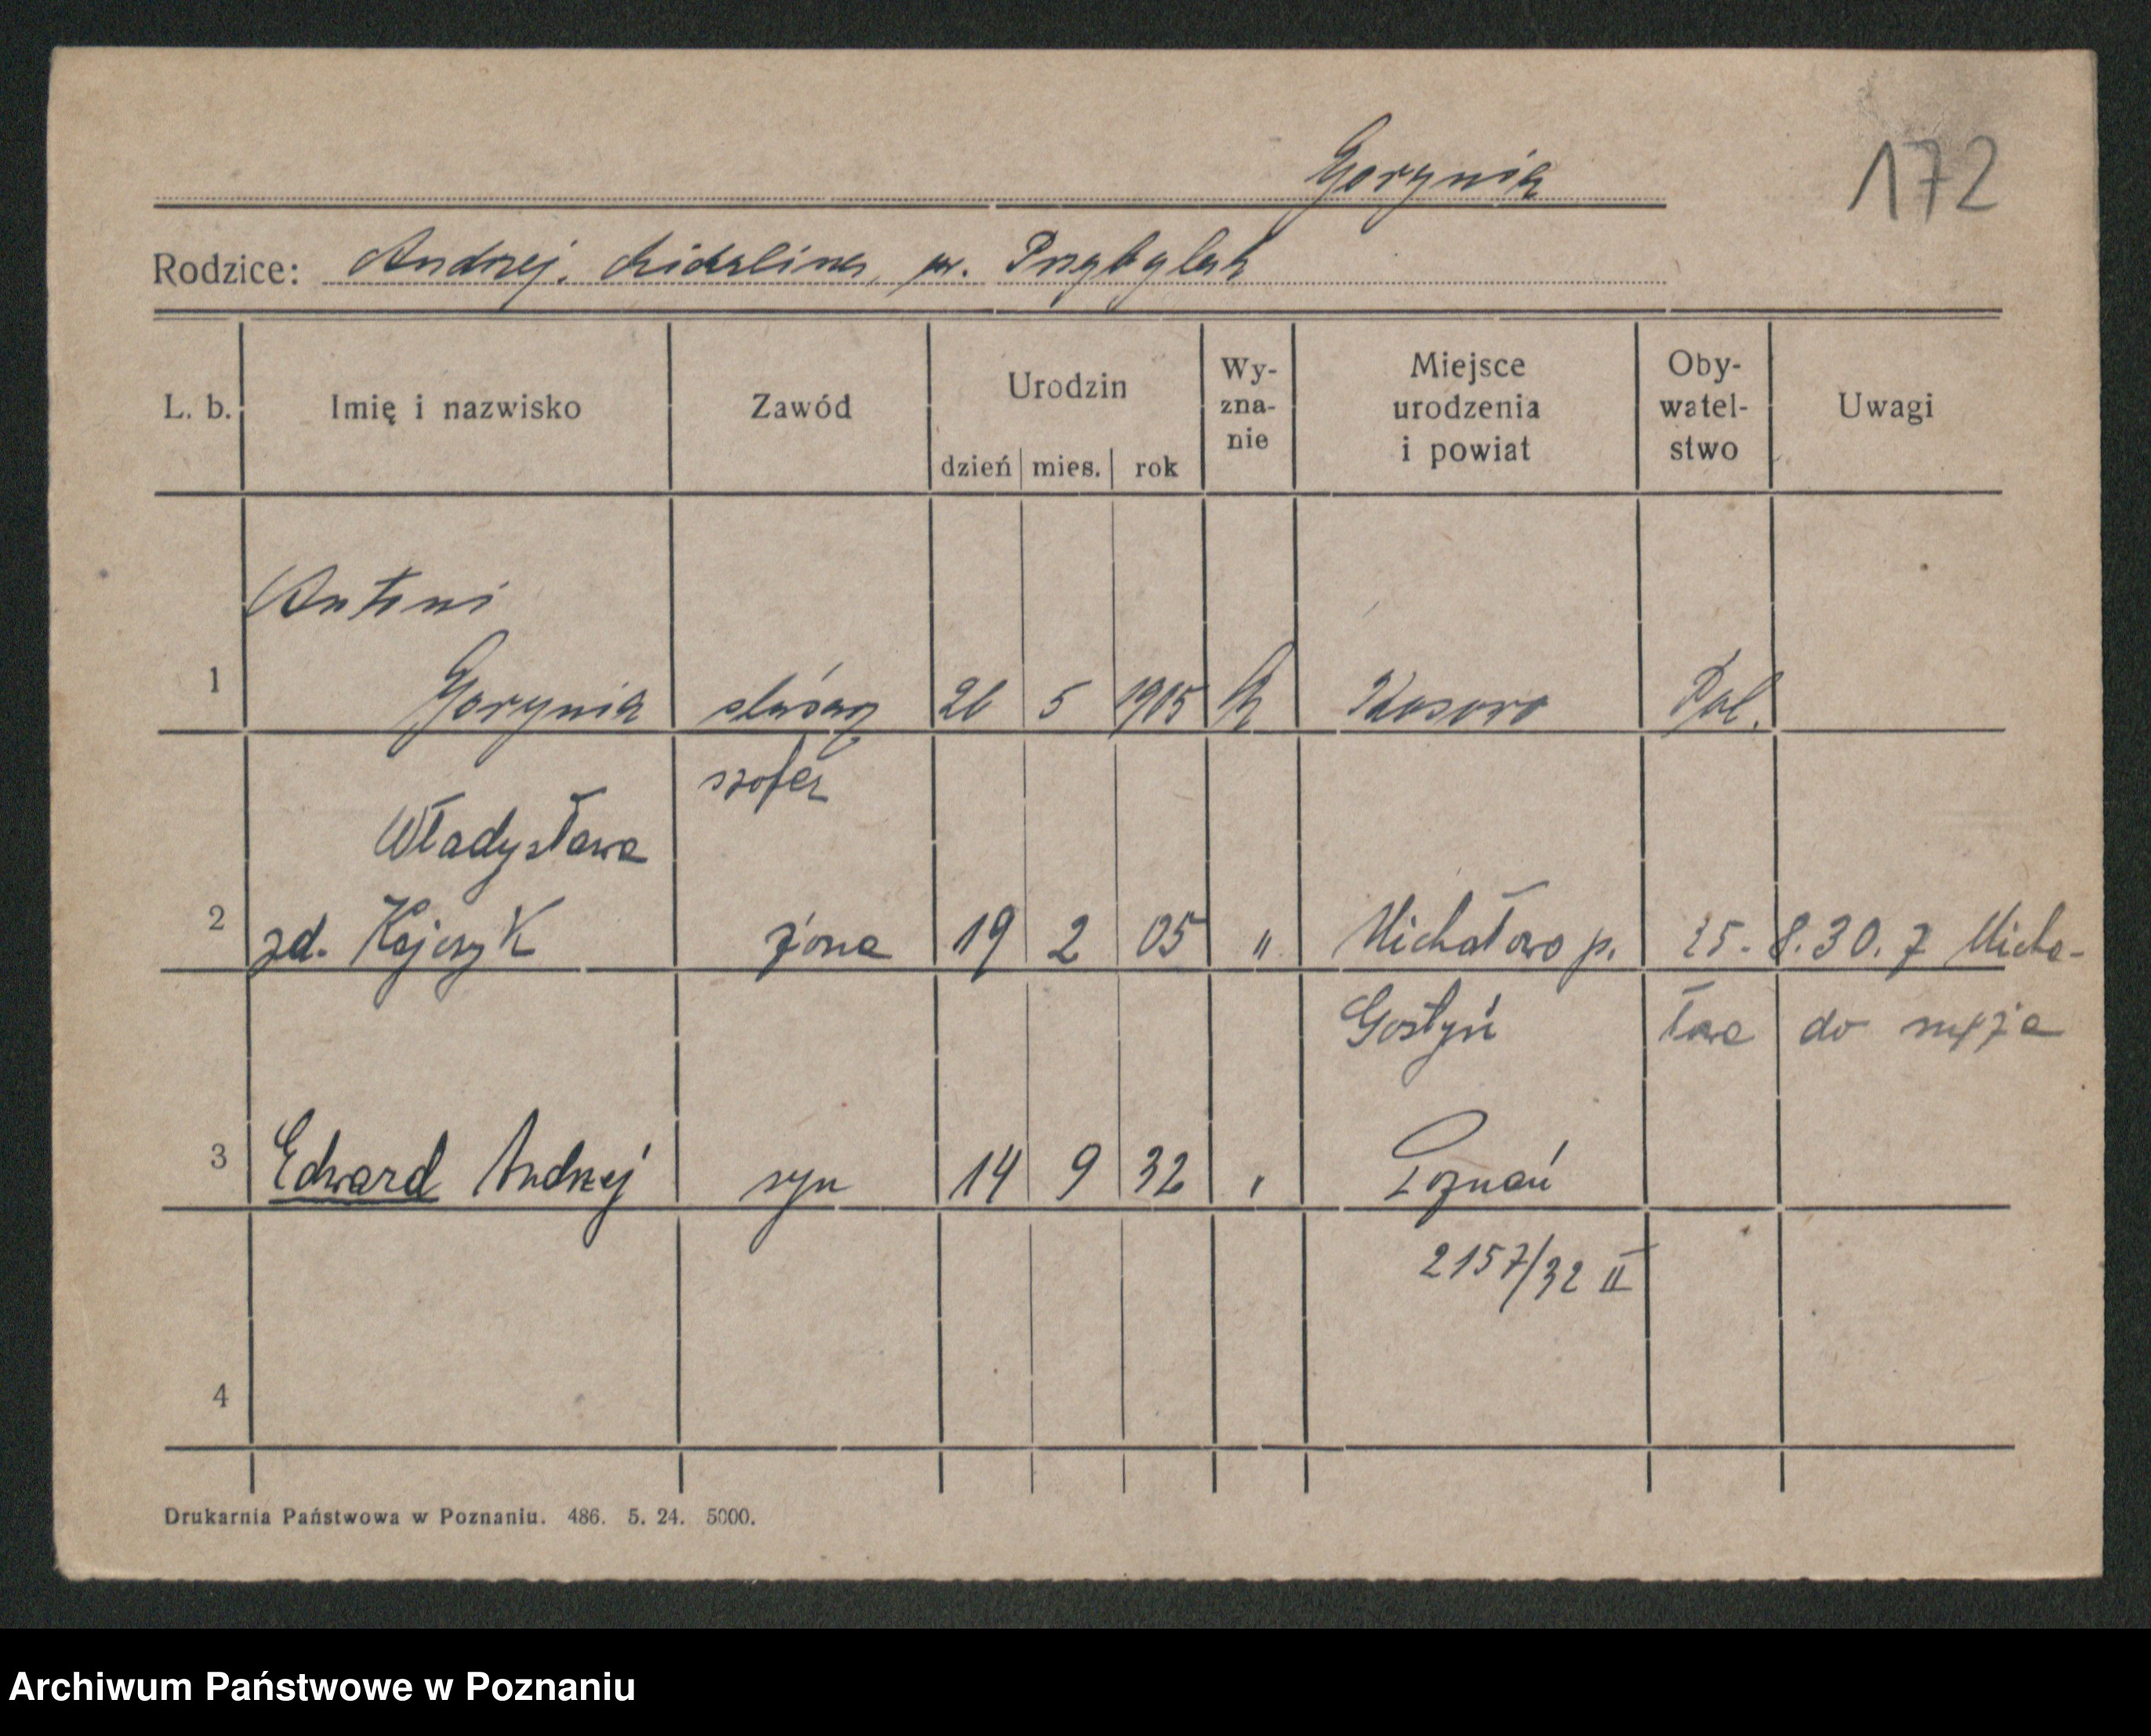 Gorynia
172
Rodzice: Andrzej. Michalina, ur. Przybylak
L. b. Imię i nazwisko Zawód Urodzin dzień mies. rok Wy-zna-nie Miejsce urodzenia i powiat Oby-watel-stwo Uwagi
Antoni
1 Gorynia ślusarz 26 5 1905 rk Kosowo Pol.
szofer
Władysława
2 zd. Kajczyk żona 19 2 05 " Michałowo p. 25. 8. 30. z Micha-
Gostyń łowa do męża
3 Edward Andrzej syn 14 9 32 " Poznań
2157/32 II
4
Drukarnia Państwowa w Poznaniu. 486. 5. 24. 5000.
Archiwum Państwowe w Poznaniu